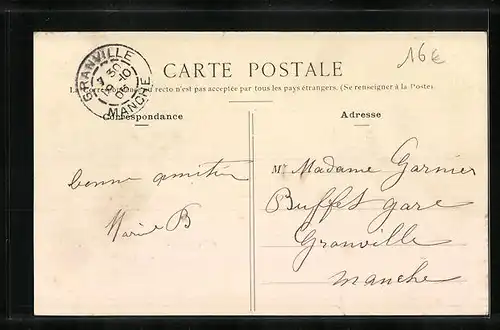 16€
GRANVILLE
MANCHE
CARTE POSTALE
La Correspondance au recto n'est pas acceptée par tous les pays étrangers. (Se renseigner à la Poste).
Correspondance
Adresse
bonne amitié
Marie B
M Madame Garnier
Buffet gare
Granville
Manche